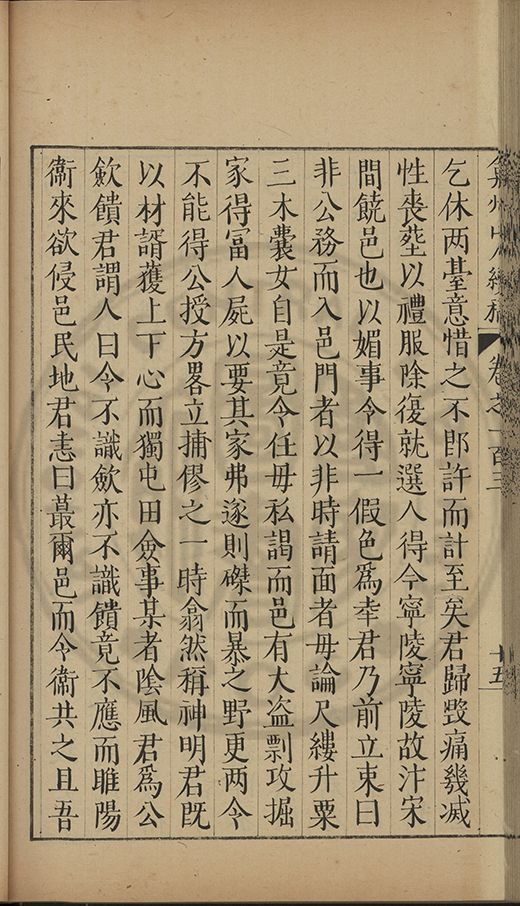 卷之一百三
十五
乞休两臺意惜之不卽許而計至矣君歸毁痛幾滅
性喪塟以禮服除復就選人得令寧陵寧陵故汴宋
間饒邑也以媚事令得一假色爲幸君乃前立束曰
非公務而入邑門者以非時請面者毋論尺縷升粟
三木囊女自是竟令任毋私謁而邑有大盗剽攻掘
家得冨人屍以要其家弗遂則磔而暴之野更两令
不能得公授方畧立捕僇之一時翕然稱神明君旣
以材諝獲上下心而獨屯田僉事某者陰風君爲公
歛饋君謂人曰令不識歛亦不識饋竟不應而睢陽
衞來欲侵邑民地君恚曰蕞爾邑而令衞共之且吾